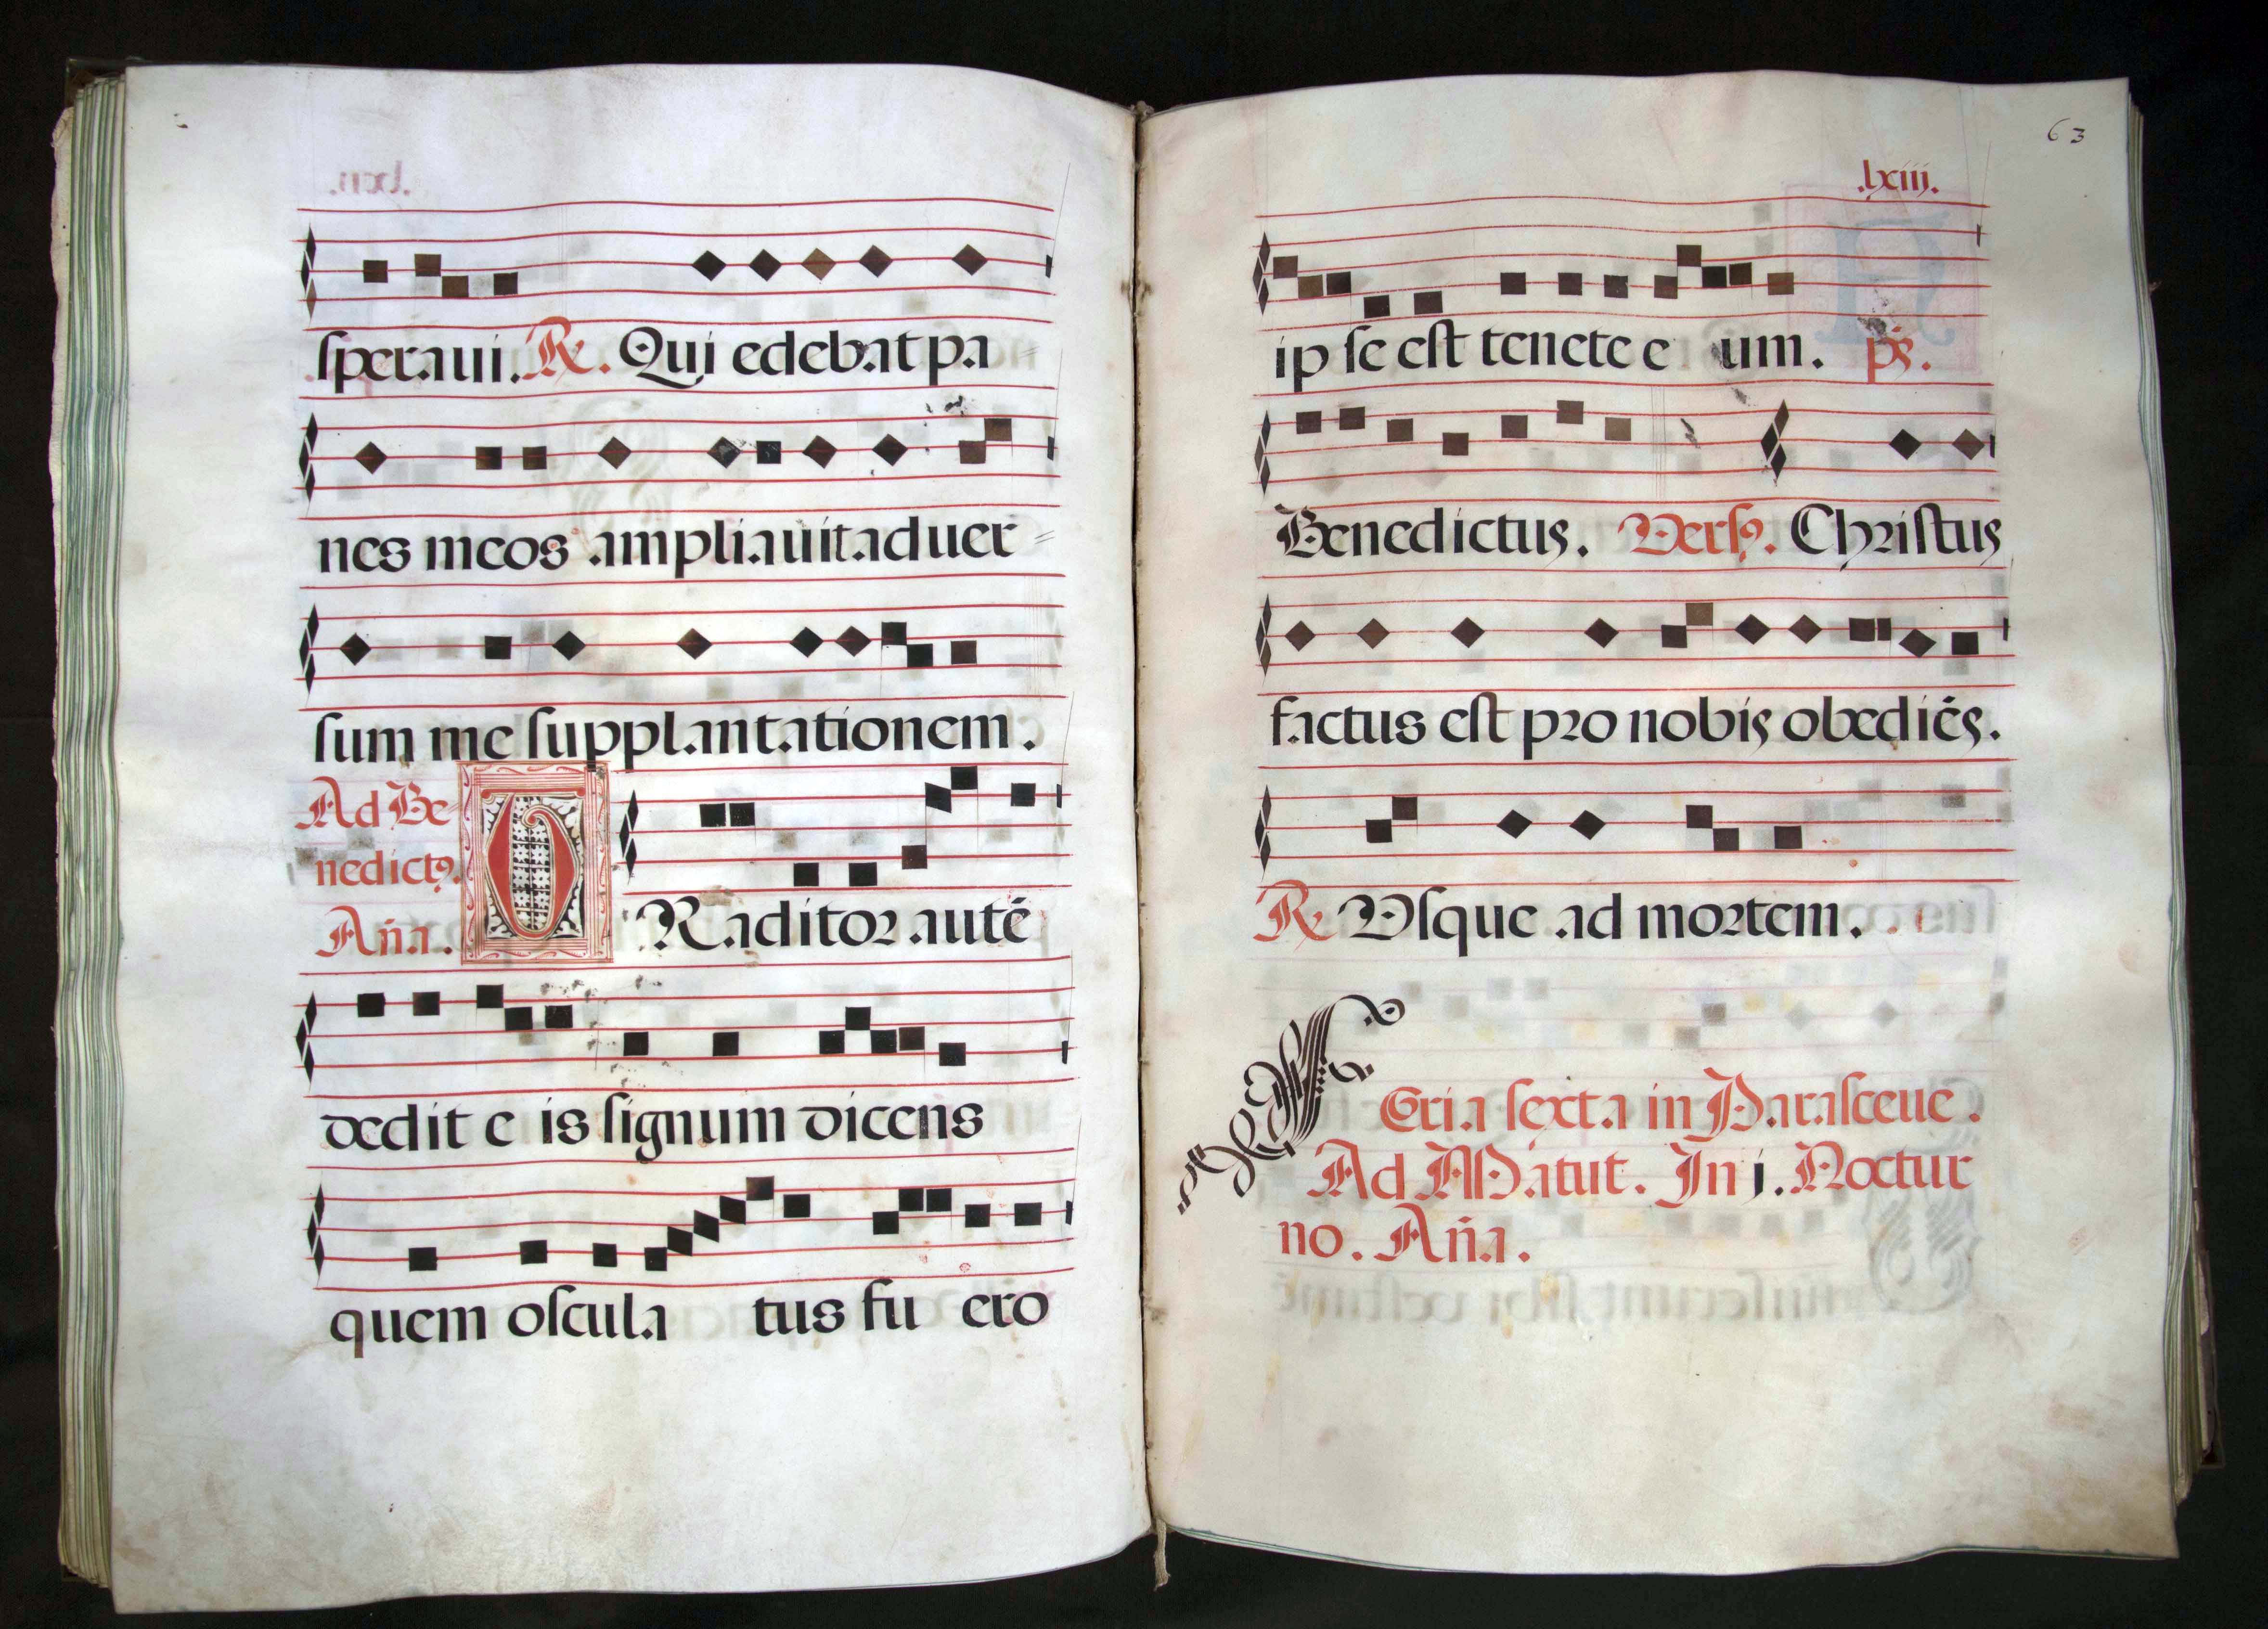 speraui. R. Qui edebat pa=
nes meos ampliauit aduer=
sum me supplantationem.
Ad Be=
nedict9.
Aña.
TRaditor autē
dedit eis signum dicens
quem oscula tus fu ero
63
.lxiii.
ip se est tenete e um. ps.
Benedictus. Vers9. Christus
factus est pro nobis obediēs.
R Vsque ad mortem.
Feria sexta in Parasceue.
Ad Matut. In j. Noctur
no. Aña.